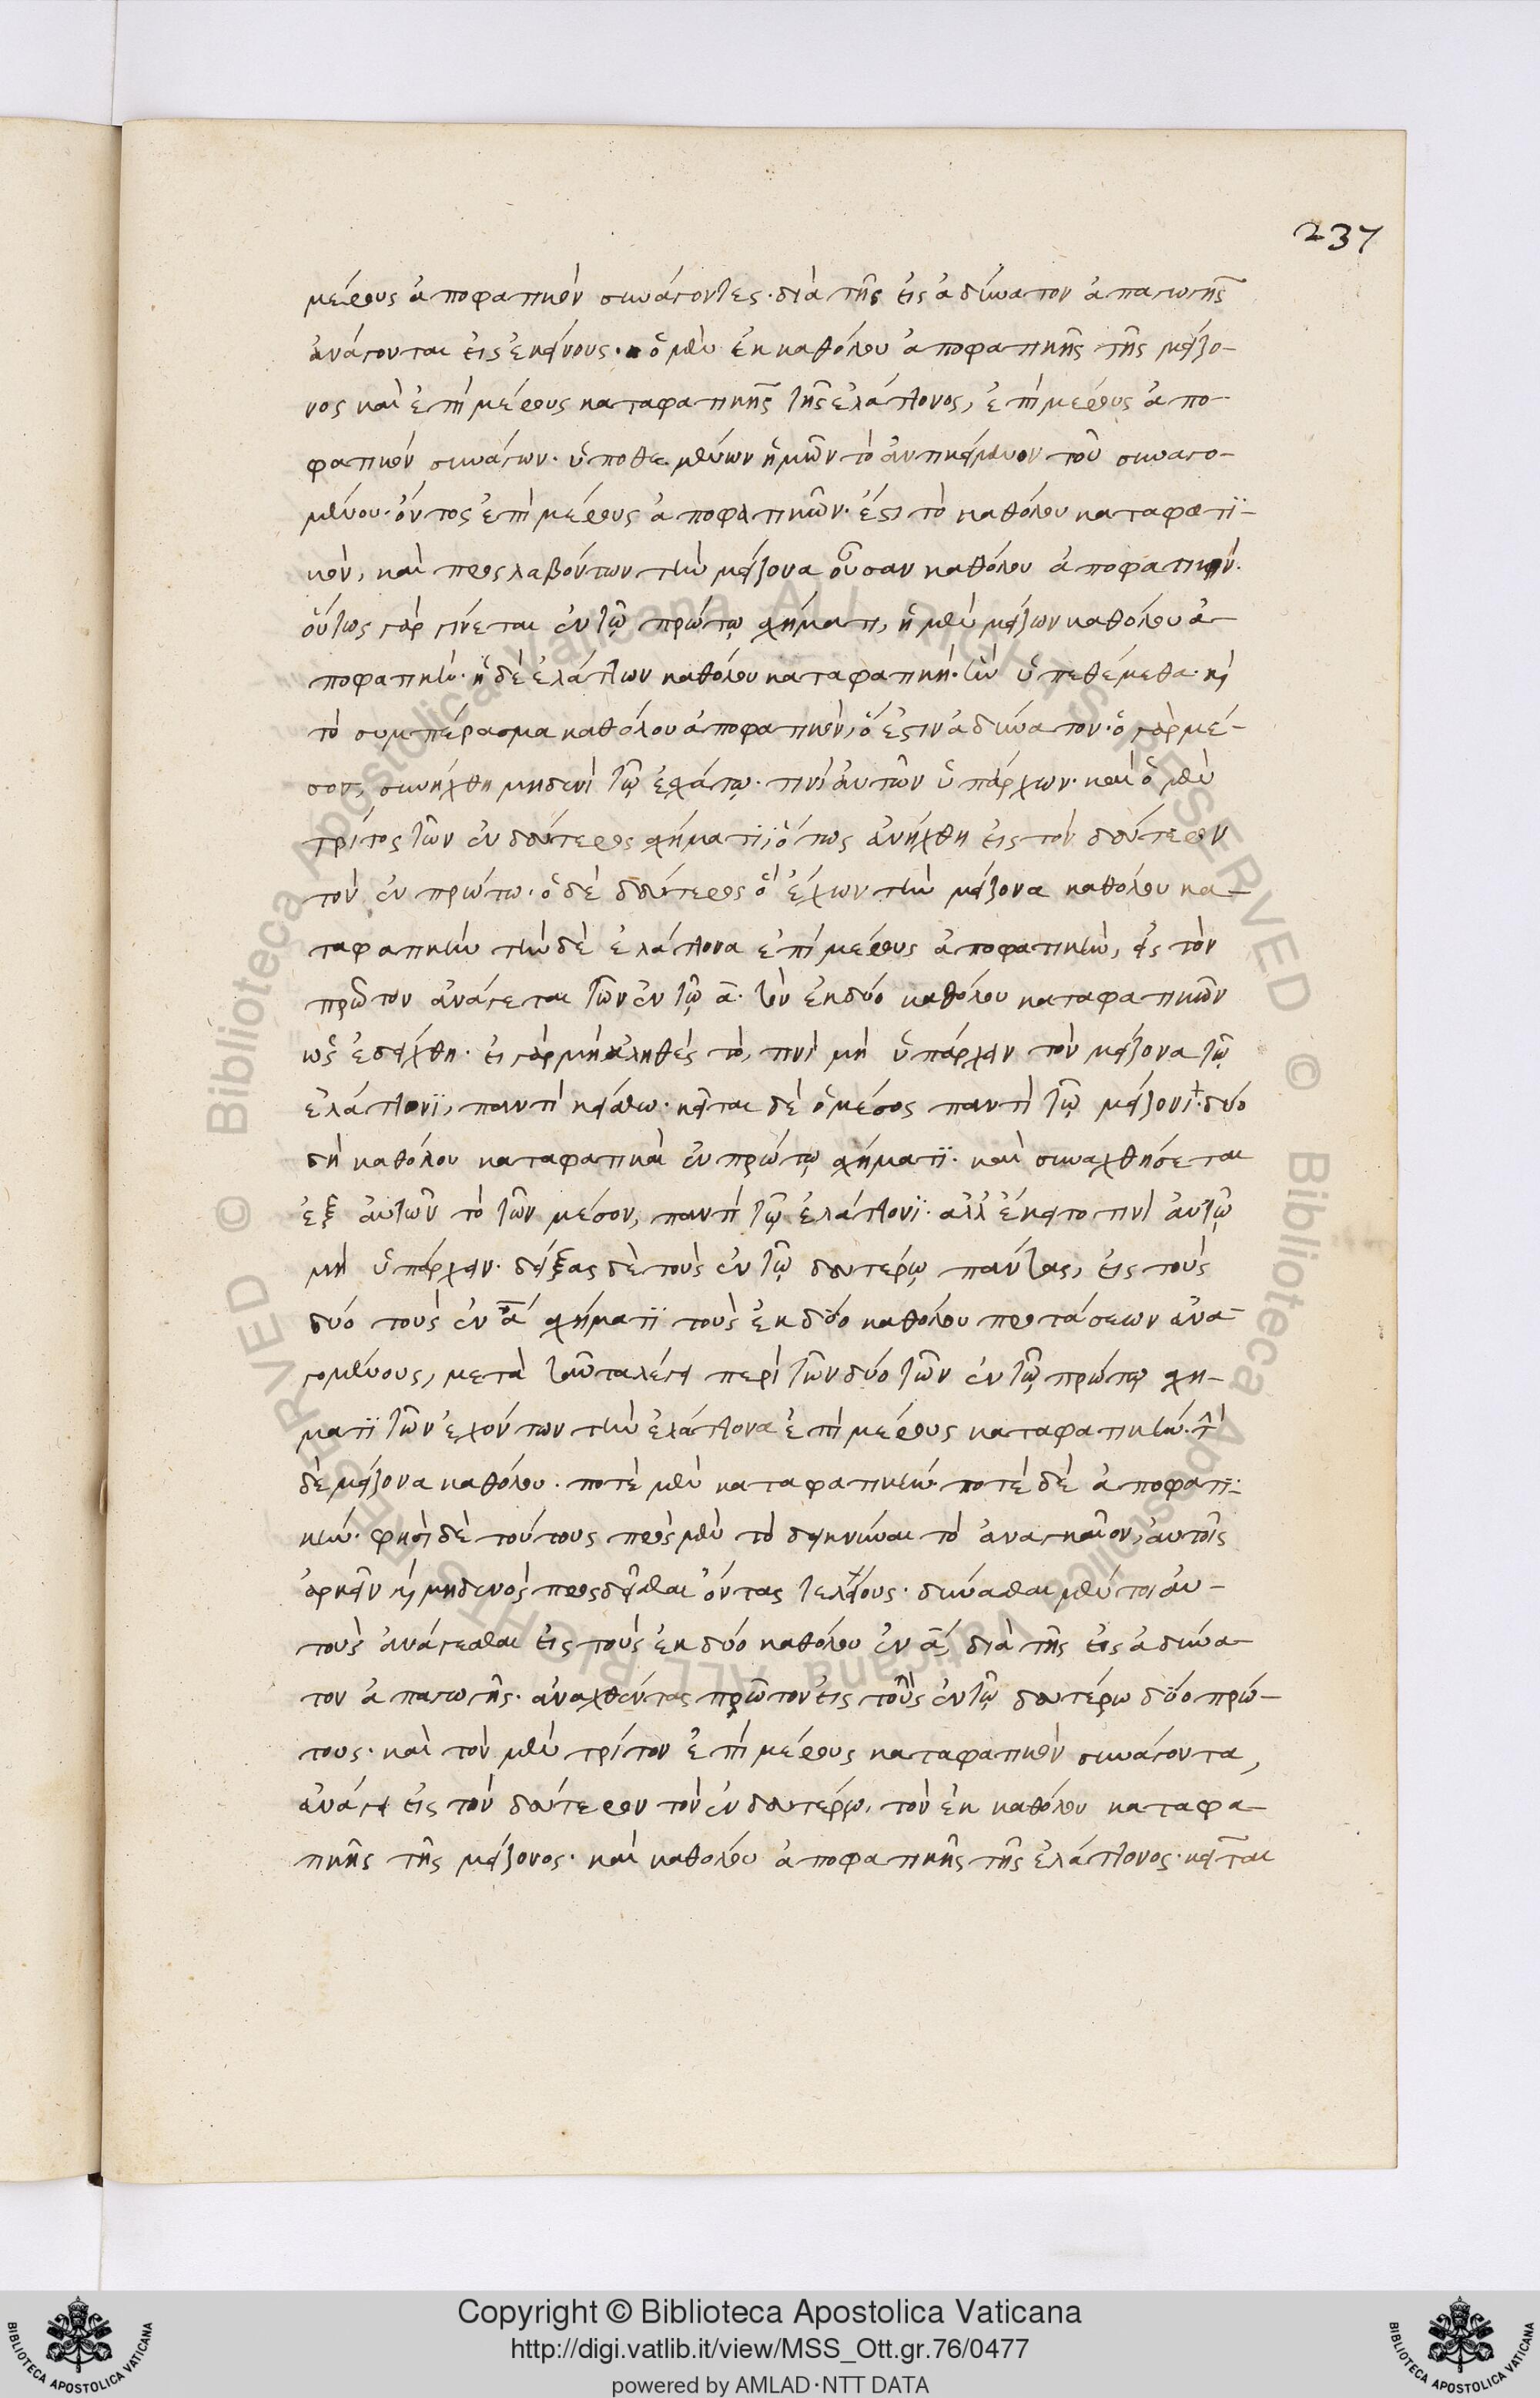 237
μέρους ἀποφατικὸν συνάγοντες· διὰ τῆς εἰς ἀδύνατον ἀπαγωγῆς
ἀνάγονται εἰς ἐκείνους· ὁ μὲν ἐκ καθόλου ἀποφατικῆς τῆς μείζο-
νος καὶ ἐπὶ μέρους καταφατικῆς τῆς ἐλάττονος, ἐπὶ μέρους ἀπο-
φατικὸν συνάγων· ὑποθεμένων ἡμῶν τὸ ἀντικείμενον τοῦ συναγο-
μένου· ὄντος ἐπὶ μέρους ἀποφατικῶν· ἔστι τὸ καθόλου καταφατι-
κὸν, καὶ προσλαβόντων τὴν μείζονα οὖσαν καθόλου ἀποφατικήν·
οὕτως γὰρ γίνεται ἐν τῷ πρώτῳ σχήματι, ἡ μὲν μείζων καθόλου ἀ-
ποφατικὴ· ἡ δὲ ἐλάττων καθόλου καταφατικὴ· ἣν ὑπεθέμεθα· καὶ
τὸ συμπέρασμα καθόλου ἀποφατικὸν, ὅ ἐστιν ἀδύνατον· ὁ γὰρ μέ-
σος, συνήχθη μηδενὶ τῷ ἐσχάτῳ· τινὶ αὐτῶν ὑπάρχων· καὶ ὁ μὲν
τρίτος τῶν ἐν δεύτερος σχήματι, ὅπως ἀνήχθη εἰς τὸν δεύτερον
τὸν ἐν πρώτω· ὁ δὲ δεύτερος ὁ ἔχων τὴν μείζονα καθόλου κα-
ταφατικὴν τὴν δὲ ἐλάττονα ἐπὶ μέρους ἀποφατικὴν, εἰς τὸν
πρῶτον ἀνάγεται τῶν ἐν τῷ α· τὸν ἐκ δύο καθόλου καταφατικῶν
ὡς ἐδείχθη· εἰ γὰρ μὴ ἀληθὲς τὸ, τινὶ μὴ ὑπάρχειν τὸν μείζονα τῷ
ἐλάττονι, παντὶ κείσθω· κεῖται δὲ ὁ μέσος παντὶ τῷ μείζονι· δύο
δὴ καθόλου καταφατικαὶ ἐν πρώτῳ σχήματι· καὶ συναχθήσεται
ἐξ αὐτῶν τὸ τὸν μέσον, παντὶ τῷ ἐλάττονι· ἀλλ' ἔκειτο τινὶ αὐτῷ
μὴ ὑπάρχειν· δείξας δὲ τοὺς ἐν τῷ δευτέρῳ πάντας, εἰς τοὺς
δύο τοὺς ἐν α σχήματι τοὺς ἐκ δύο καθόλου προτάσεων ἀνα-
γομένους, μετὰ ταῦτα λέγει περὶ τῶν δύο τῶν ἐν τῷ πρώτῳ σχή-
ματι τῶν ἐχόντων τὴν ἐλάττονα ἐπὶ μέρους καταφατικὴν· τὴν
δὲ μείζονα καθόλου· ποτὲ μὲν καταφατικὴν ποτὲ δὲ ἀποφατι-
κήν· φησὶ δὲ τούτους πρὸς μὲν τὸ δεικνύναι τὸ ἀναγκαῖον, αὐτοῖς
ἀρκεῖν καὶ μηδενὸς προσδεῖσθαι ὄντας τελείους· δύνασθαι μέντοι αὐ-
τοὺς ἀνάγεσθαι εἰς τοὺς ἐκ δύο καθόλου ἐν α, διὰ τῆς εἰς ἀδύνα-
τον ἀπαγωγῆς· ἀναχθέντας πρῶτον εἰς τοὺς ἐν τῷ δευτέρω δύο πρώ-
τους· καὶ τὸν μὲν τρίτον ἐπὶ μέρους καταφατικὸν συνάγοντα,
ἀνάγει εἰς τὸν δεύτερον τὸν ἐν δευτέρῳ, τὸν ἐκ καθόλου καταφα-
τικῆς τῆς μείζονος· καὶ καθόλου ἀποφατικῆς τῆς ἐλάττονος· κεῖται
Copyright © Biblioteca Apostolica Vaticana
http://digi.vatlib.it/view/MSS_Ott.gr.76/0477
powered by AMLAD·NTT DATA